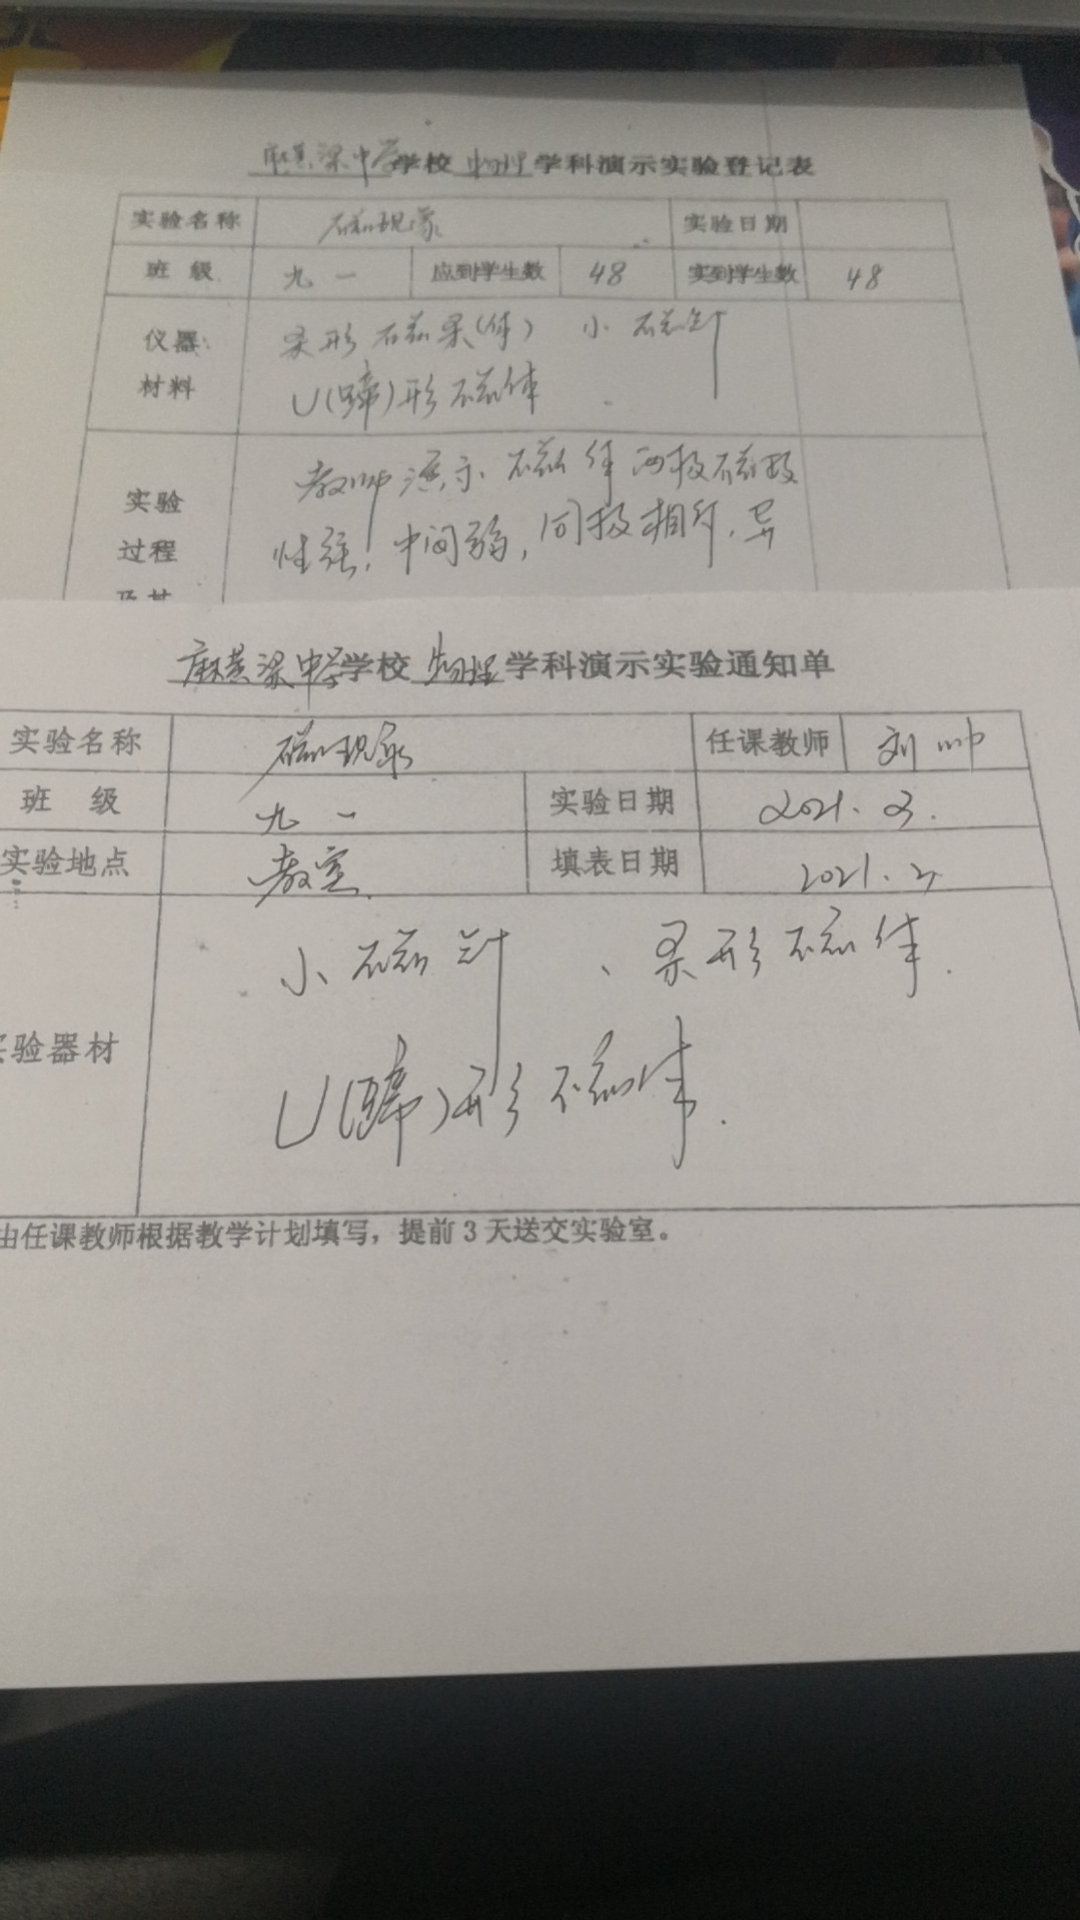 麻黄梁中学学校 物理 学科演示实验登记表
实验名称 磁现象 实验日期
班 级 九 一 应到学生数 48 实到学生数 48
仪器: 条形磁条(体) 小磁针
材料 U(蹄)形磁体
实验 教师演示磁体两极磁极
过程 性强,中间弱,同极相斥,异
及其
麻黄梁中学学校 物理 学科演示实验通知单
实验名称 磁现象 任课教师 刘帅
班 级 九 一 实验日期 2021.3.
实验地点 教室 填表日期 2021.3
小磁针、条形磁体.
验器材
U(蹄)形磁体.
由任课教师根据教学计划填写，提前3天送交实验室。